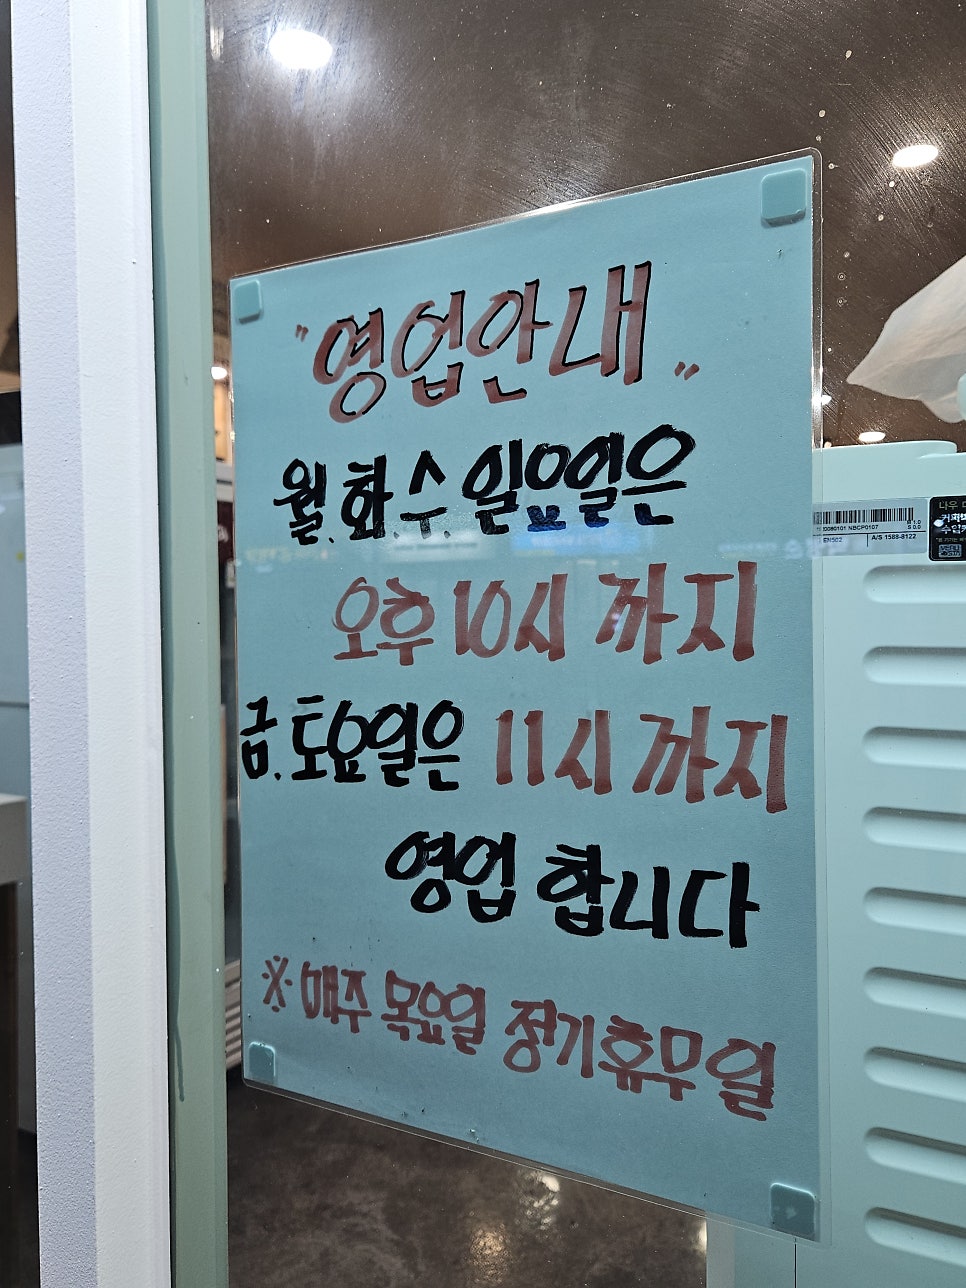 "영업안내"
월.화.수.일요일은
오후 10시 까지
금.토요일은 11시 까지
영업 합니다
※ 매주 목요일 정기휴무일
A/S 1588-8122